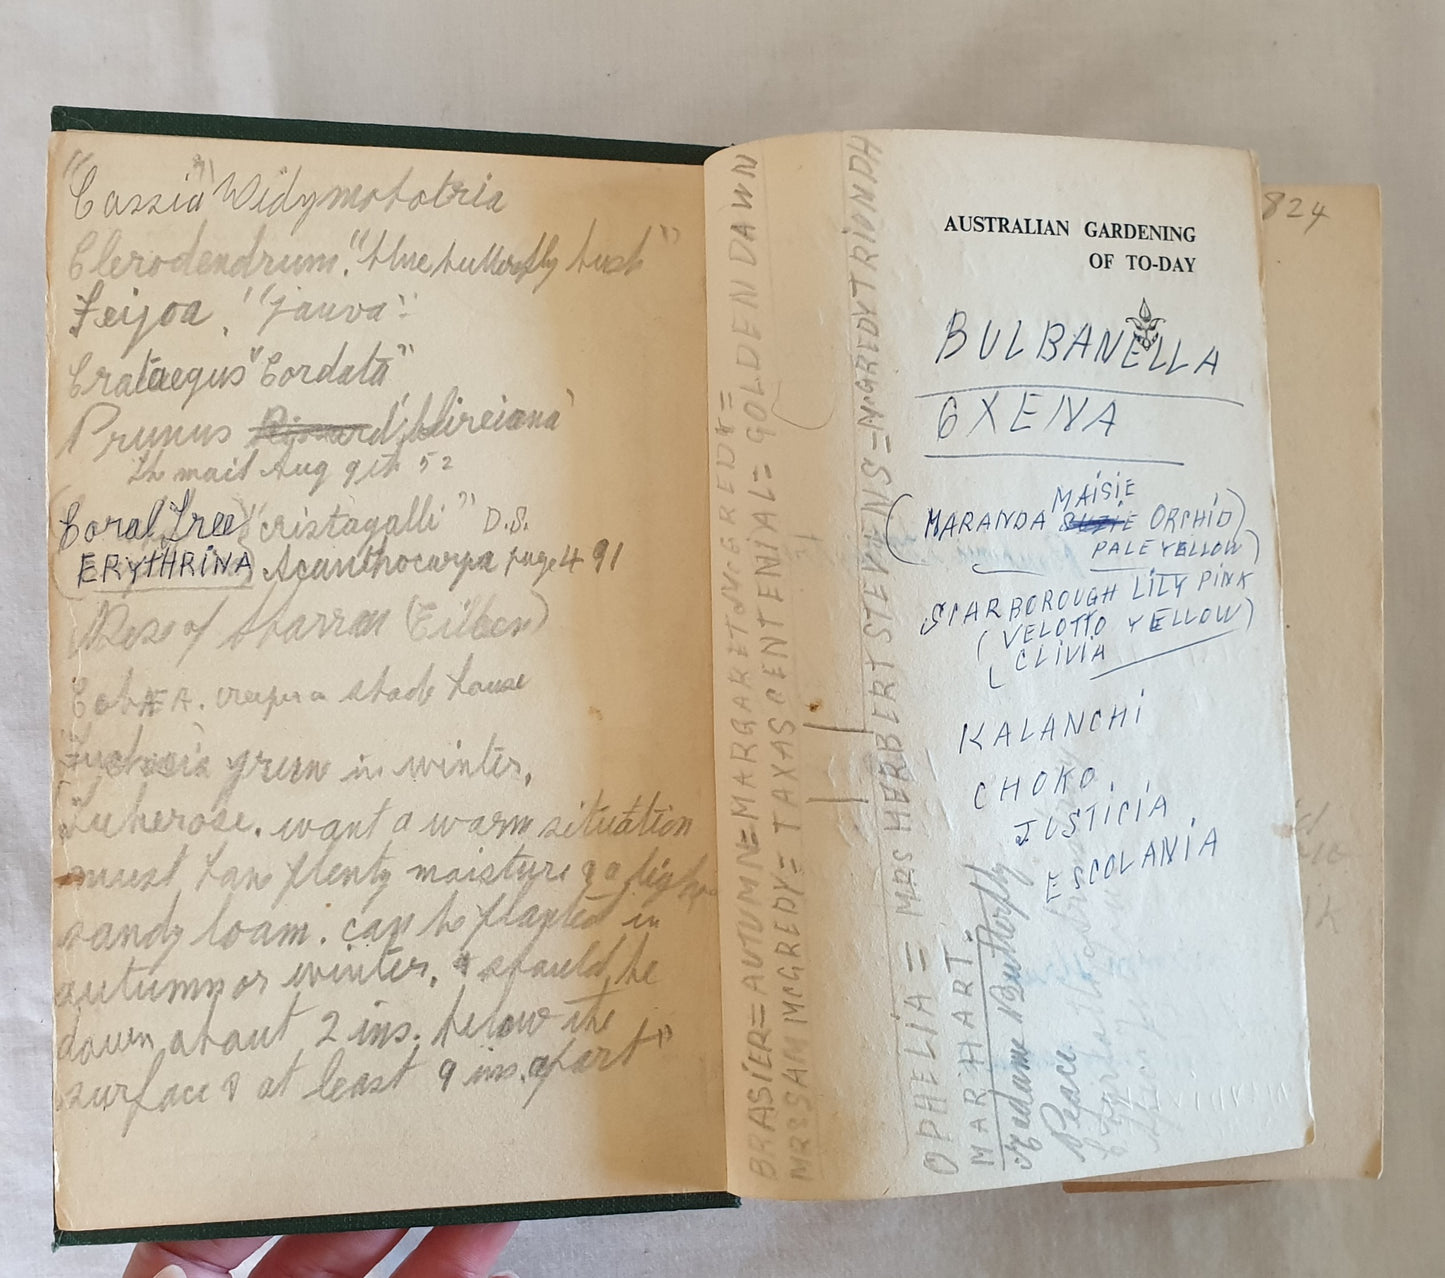 "Cassia" Didymobotria
Clerodendrum. "blue butterfly bush"
Feijoa. "Gauva"
Crataegus "Cordata"
Prunus blireiana
In mail Aug 9th 52
(Coral Tree) "cristagalli" D.S.
(ERYTHRINA) Acanthocarpa page 491
Rose of Sharron
creeper shade house
Fuchsia green in winter.
Tuberose. want a warm situation
must have plenty moisture & a light
sandy loam. can be planted in
autumn or winter. & should be
down about 2 ins. below the
surface & at least 9 ins. apart"
BRASIER=AUTUMN=MARGARET McGREDY=
MRS SAM McGREDY=TAXAS CENTENIAL=GOLDEN DAWN
OPHELIA = MRS HERBERT STEVENS=McGREDY TRIUNDH
MAR: HART.
Madame Butterfly
Peace.
AUSTRALIAN GARDENING
OF TO-DAY
BULBANELLA
GXENA
MAISIE
(MARANDA ORCHID)
PALE YELLOW)
SCARBOROUGH LILY PINK
(VELOTTO YELLOW)
CLIVIA
KALANCHI
CHOKO.
JUSTICIA
ESCOLANIA
824